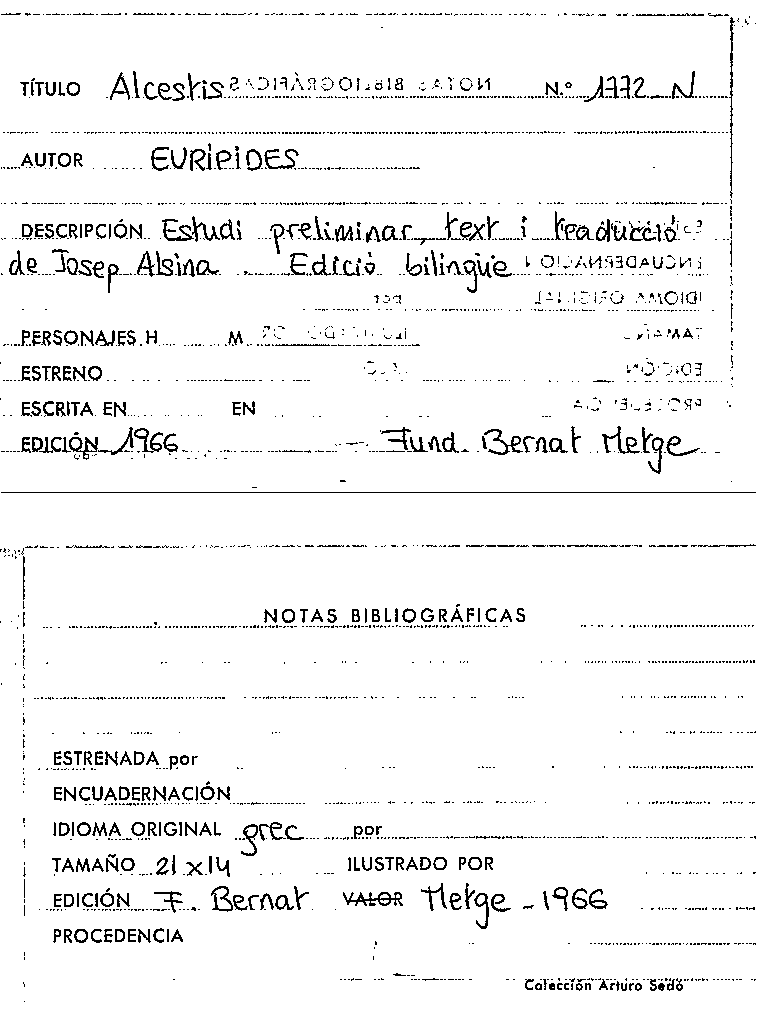 TÍTULO Alcestis N.º 1772-N
AUTOR EURÍPIDES
DESCRIPCIÓN Estudi preliminar, text i traducció
de Josep Alsina. Edició bilingüe
PERSONAJES H M
ESTRENO
ESCRITA EN EN
EDICIÓN 1966 - Fund. Bernat Metge
NOTAS BIBLIOGRÁFICAS
ESTRENADA por
ENCUADERNACIÓN
IDIOMA ORIGINAL grec por
TAMAÑO 21x14 ILUSTRADO POR
EDICIÓN F. Bernat VALOR Metge - 1966
PROCEDENCIA
Colección Arturo Sedó